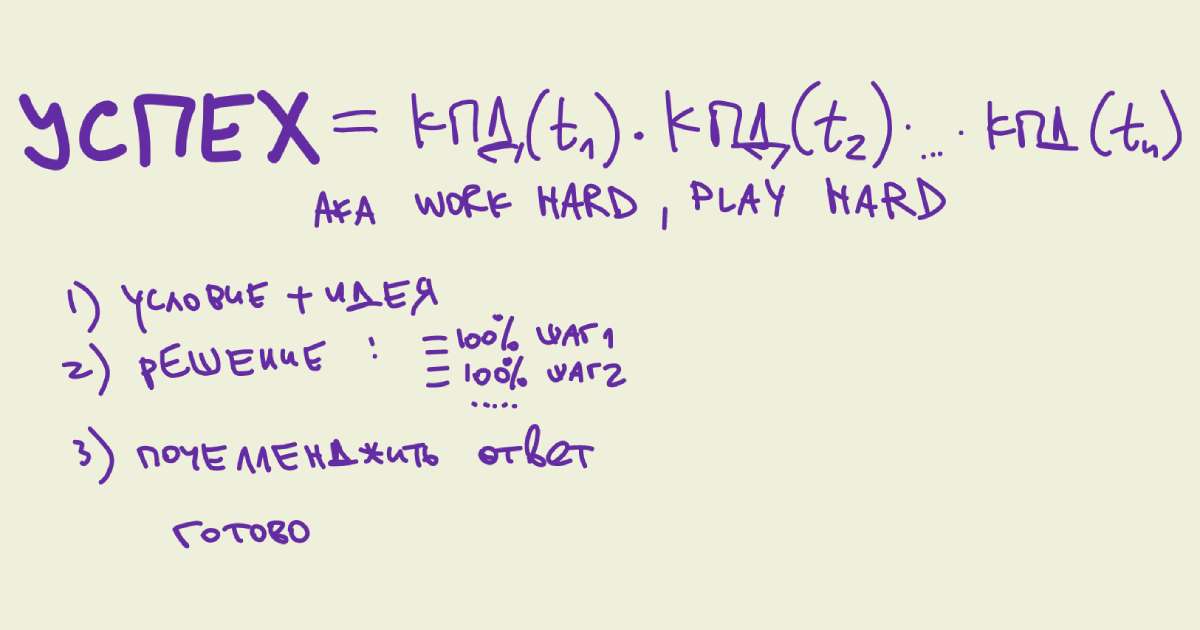 УСПЕХ = КПД(t₁) · КПД(t₂) · ... · КПД(tₙ)
AKA WORK HARD, PLAY HARD
1) УСЛОВИЕ + ИДЕЯ
2) РЕШЕНИЕ : ☰ 100% ШАГ1
☰ 100% ШАГ2
.....
3) ПОЧЕЛЛЕНДЖИТЬ ОТВЕТ
ГОТОВО